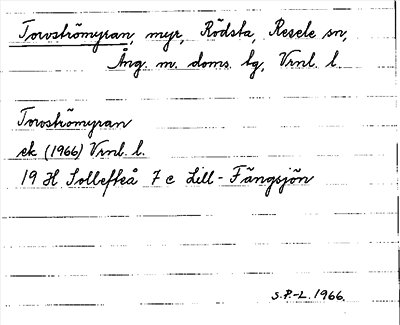 Torvströmyran, myr, Rödsta, Resele sn,
Ång. m. doms. lg, Vrnl. l.
Torvströmyran
ek (1966) Vrnl. l.
19 H Sollefteå 7 c Lill-Fängsjön
S.P.-L. 1966.